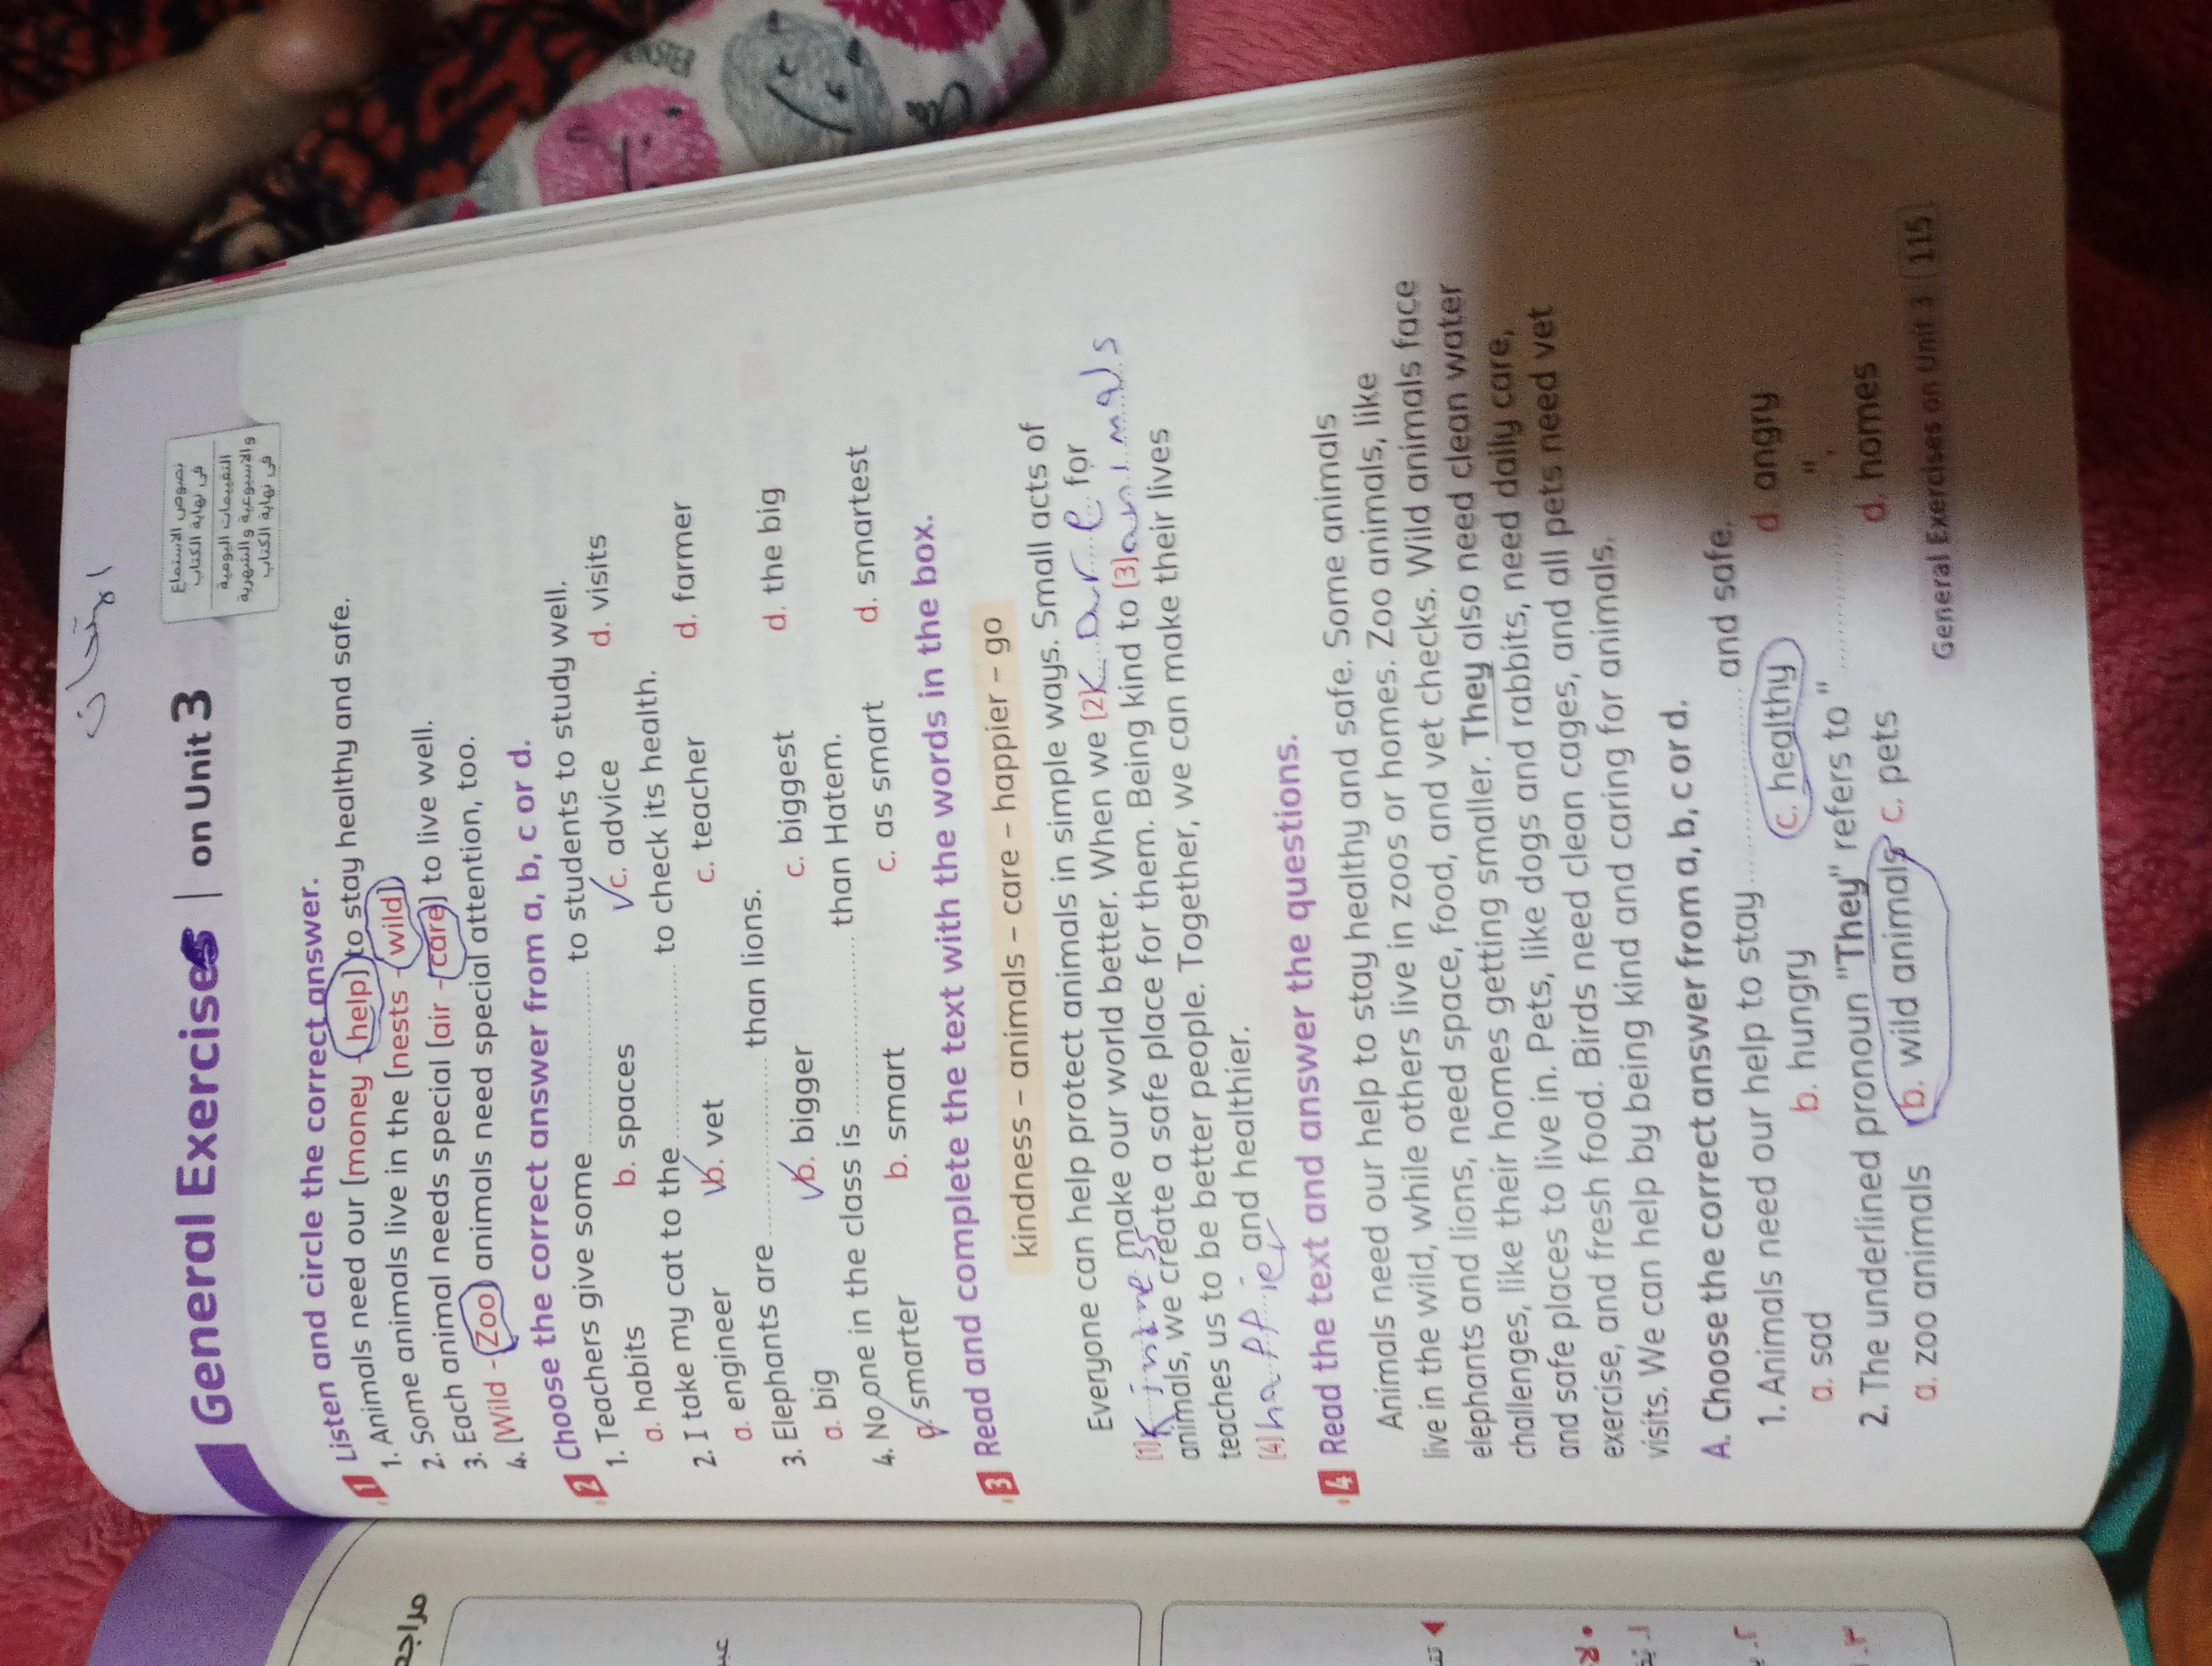 الامتحان
General Exercises | on Unit 3
نصوص الاستماع
فى نهاية الكتاب
التقييمات اليومية
والاسبوعية والشهرية
فى نهاية الكتاب
1 Listen and circle the correct answer.
1. Animals need our [money - help] to stay healthy and safe.
2. Some animals live in the [nests - wild].
3. Each animal needs special [air - care] to live well.
4. [Wild - Zoo] animals need special attention, too.
2 Choose the correct answer from a, b, c or d.
1. Teachers give some .................. to students to study well.
a. habits b. spaces c. advice d. visits
2. I take my cat to the .................. to check its health.
a. engineer b. vet c. teacher d. farmer
3. Elephants are .................. than lions.
a. big b. bigger c. biggest d. the big
4. No one in the class is .................. than Hatem.
a. smarter b. smart c. as smart d. smartest
3 Read and complete the text with the words in the box.
kindness – animals – care – happier – go
Everyone can help protect animals in simple ways. Small acts of
[1] make our world better. When we [2] for
animals, we create a safe place for them. Being kind to [3] animals
teaches us to be better people. Together, we can make their lives
[4] happier and healthier.
4 Read the text and answer the questions.
Animals need our help to stay healthy and safe. Some animals
live in the wild, while others live in zoos or homes. Zoo animals, like
elephants and lions, need space, food, and vet checks. Wild animals face
challenges, like their homes getting smaller. They also need clean water
and safe places to live in. Pets, like dogs and rabbits, need daily care,
exercise, and fresh food. Birds need clean cages, and all pets need vet
visits. We can help by being kind and caring for animals.
A. Choose the correct answer from a, b, c or d.
1. Animals need our help to stay .................. and safe.
a. sad b. hungry c. healthy d. angry
2. The underlined pronoun "They" refers to "..................".
a. zoo animals b. wild animals c. pets d. homes
General Exercises on Unit 3 115